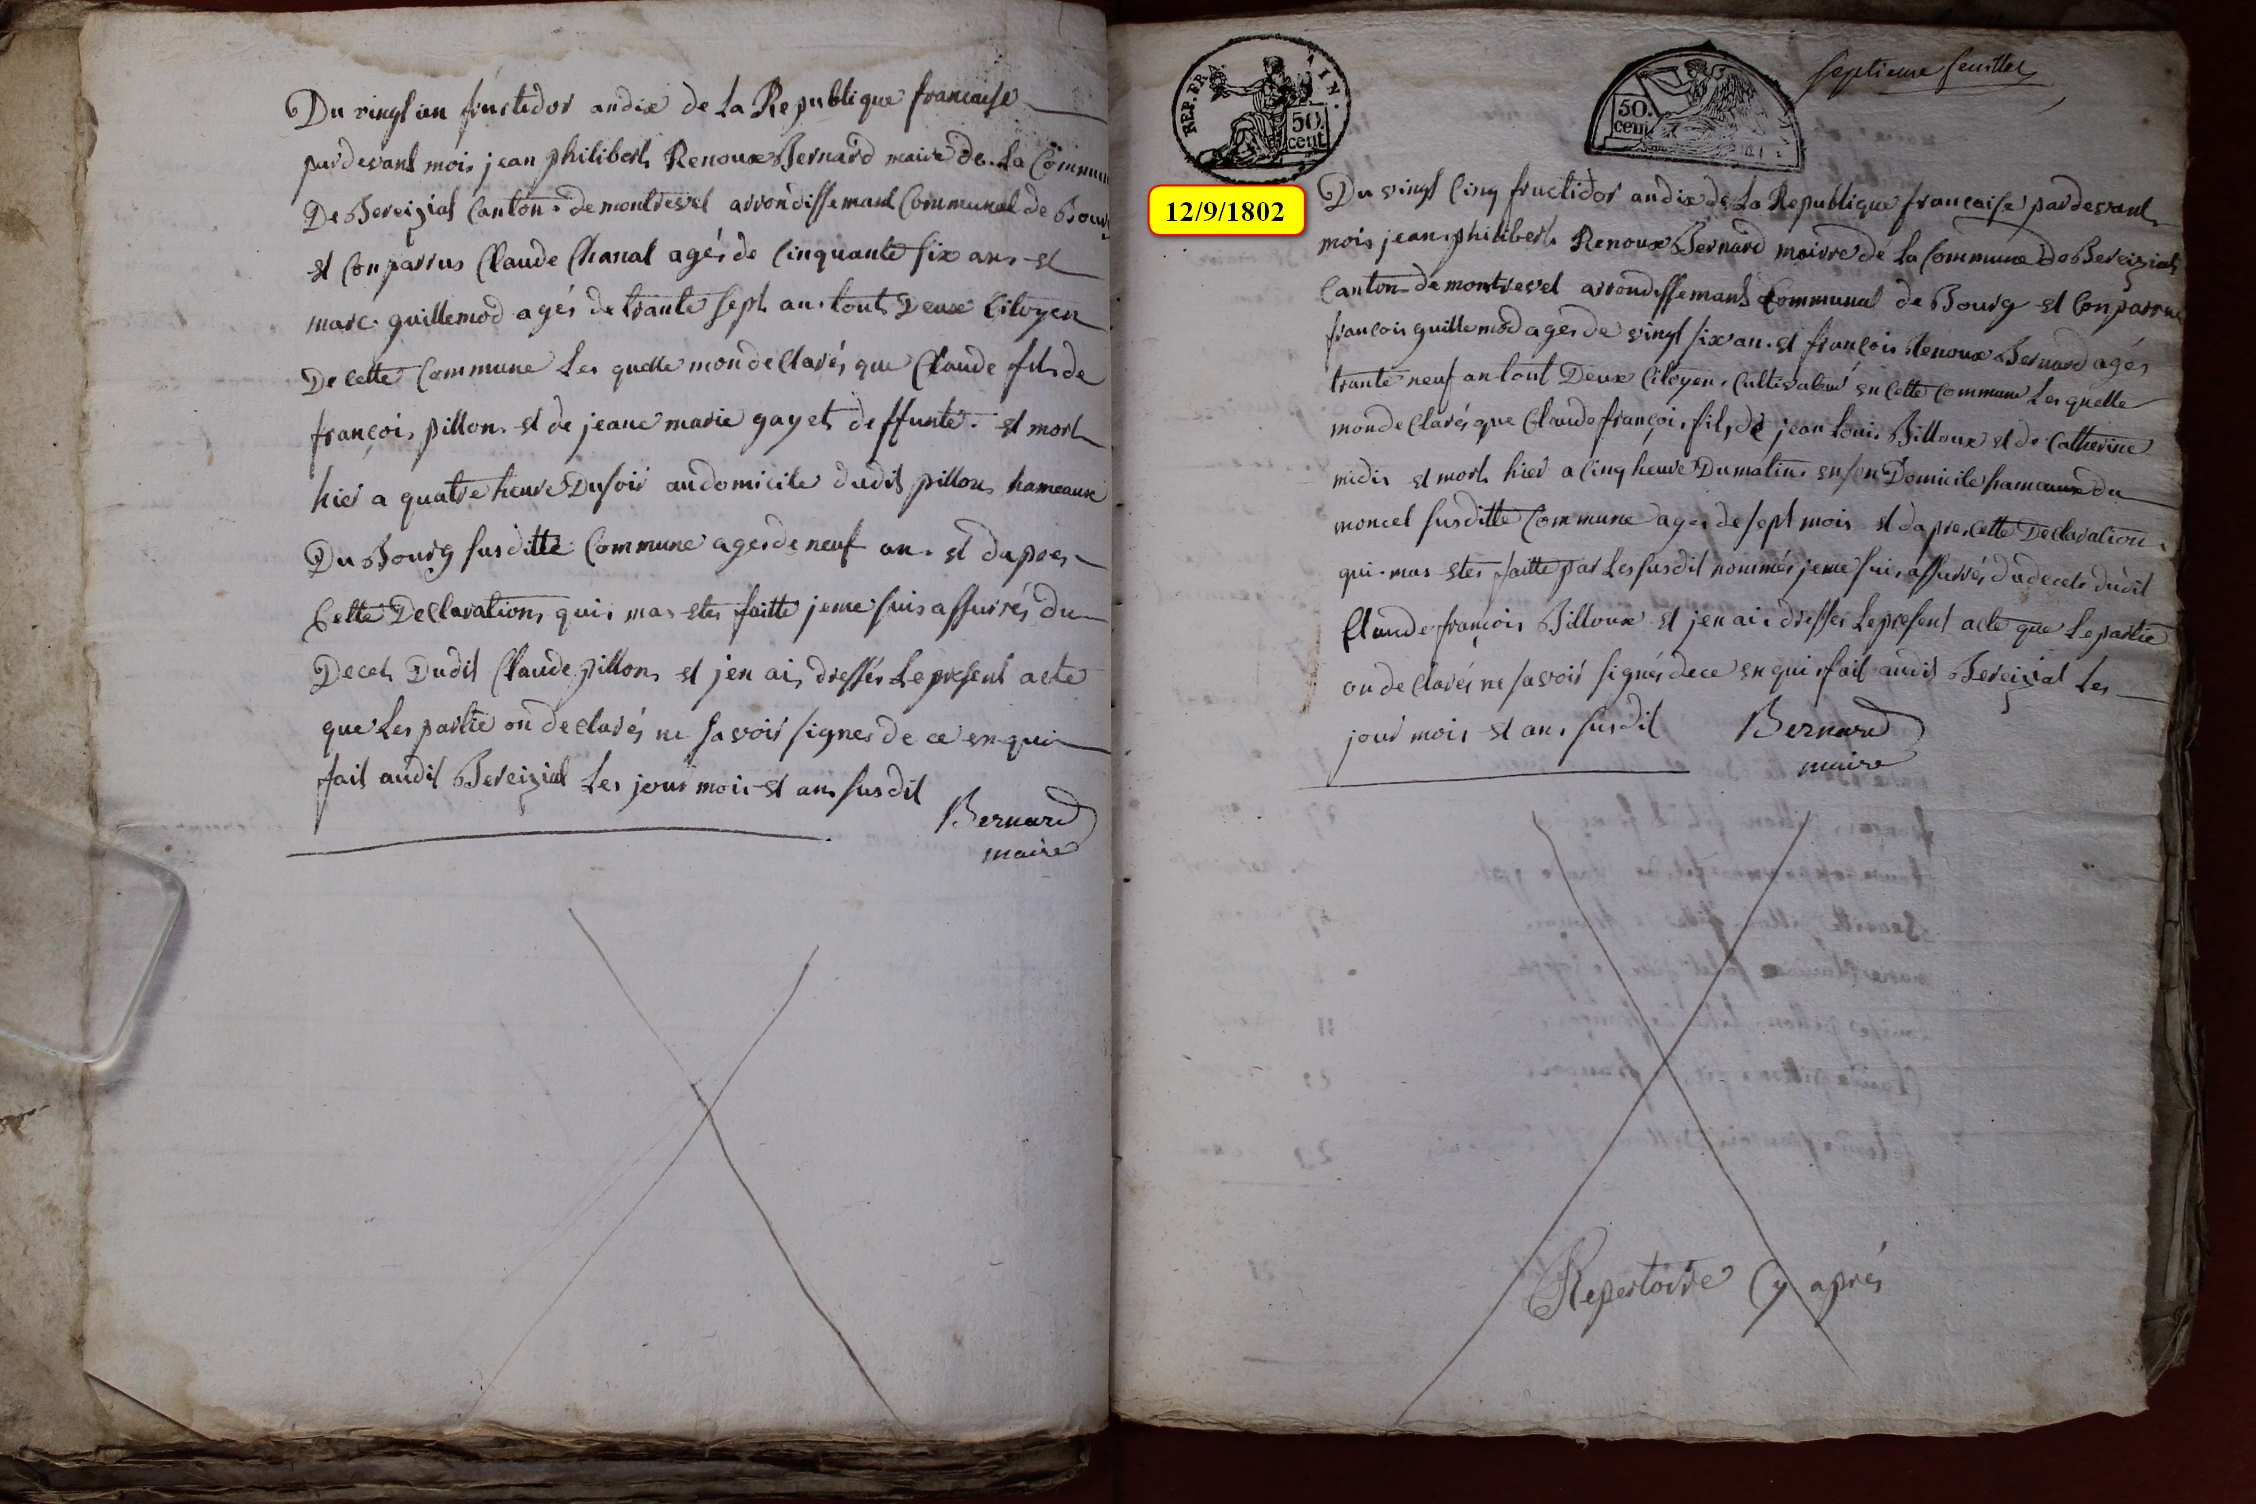 Du vingt un fructidor an dix de La Republique francaise
pardevant mois jean philibert Renoux Bernard maire de La Commun
De Bereizial Canton de montrevel arrondissemant Communal de Bourg
et Conparrus Claude Chanal agés de Cinquante six ans et
marc guillemod agés de trante sept an tout Deux Citoyen
De Cette Commune Les quelle mon declarés que Claude fils de
françois pillon et de jeane marie gayet deffunte et mort
hier a quatre heure Du soir au domicile dudit pillon hameaux
Du Bourg susditte Commune ages de neuf an et dapres
Cette Declaration qui mas etes faitte je me suis assurrés du
Deces Dudit Claude pillon et jen ai dressés Le present acte
que Les partie on declarés ne savoir signes de ce enqui
fait audit Bereizial Les jour mois et an susdit
Bernard
maire
REP. FRA
AIN.
50.
cent
50.
cent
septieme feuillet
12/9/1802
Du vingt Cinq fructidor an dix de La Republique francaise pardevant
mois jean philibert Renoux Bernard mairre de La Commune De Bereizial
Canton de montrevel arrondissemant Communal de Bourg et Conparrue
francois guillemod ages de vingt six an et françois Renoux Bernard agés
trante neuf an tout Deux Citoyen Cultivateur en Cette Commune Les quelle
mon declarés que Claude françois fils de jean Louis Billoux et de Catherine
midis et mort hier a Cinq heure Du matin en son Domicile hameaux du
moncel susditte Commune ages de sept mois et dapres Cette Declaration
qui mas etes faitte par Les susdit nommés je me suis assurrés du deces dudit
Claude françois Billoux et jen ai dresses Le present acte que Le partie
on declarés ne savoir signés de ce enqui fait audit Bereizial Les
jour mois et an susdit
Bernard
maire
Repertoire Cy aprés